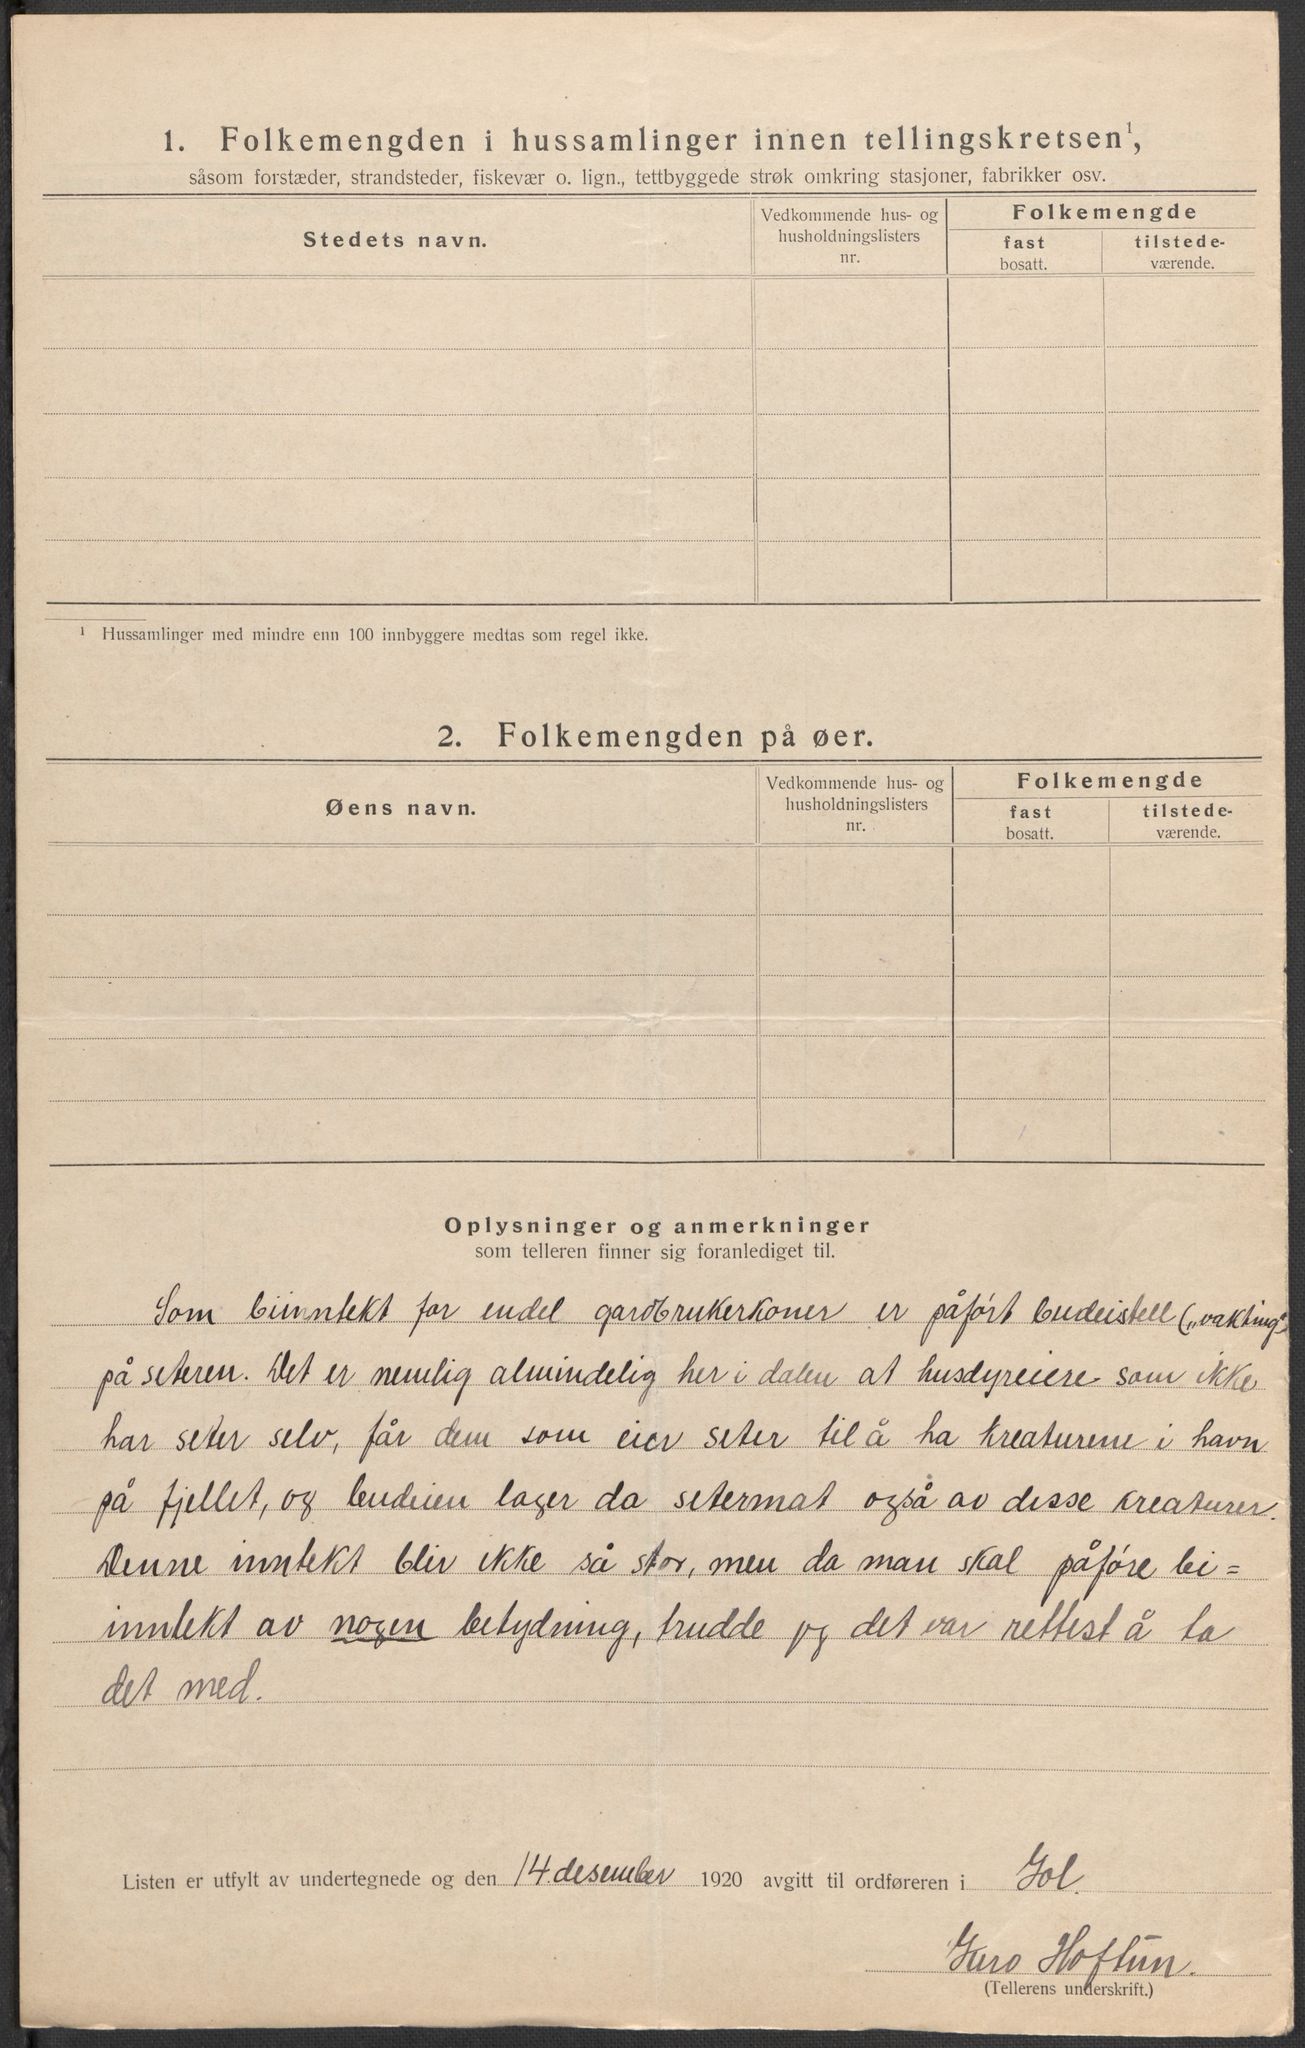 1. Folkemengden i hussamlinger innen tellingskretsen¹,
såsom forstæder, strandsteder, fiskevær o. lign., tettbyggede strøk omkring stasjoner, fabrikker osv.
Stedets navn.
Vedkommende hus- og
husholdningslisters
nr.
Folkemengde
fast
bosatt.
tilstede-
værende.
¹ Hussamlinger med mindre enn 100 innbyggere medtas som regel ikke.
2. Folkemengden på øer.
Øens navn.
Vedkommende hus- og
husholdningslisters
nr.
Folkemengde
fast
bosatt.
tilstede-
værende.
Oplysninger og anmerkninger
som telleren finner sig foranlediget til.
Som biinntekt for endel gardbrukerkoner er påført budeistell („vakting“)
på seteren. Det er nemlig almindelig her i dalen at husdyreiere som ikke
har seter selv, får dem som eier seter til å ha kreaturene i havn
på fjellet, og budeien lager da setermat også av disse kreaturer.
Denne inntekt blir ikke så stor, men da man skal påføre bi=
inntekt av nogen betydning, trudde jeg det var rettest å ta
det med.
Listen er utfylt av undertegnede og den 14. desember 1920 avgitt til ordføreren i Gol.
Hoftun.
(Tellerens underskrift.)